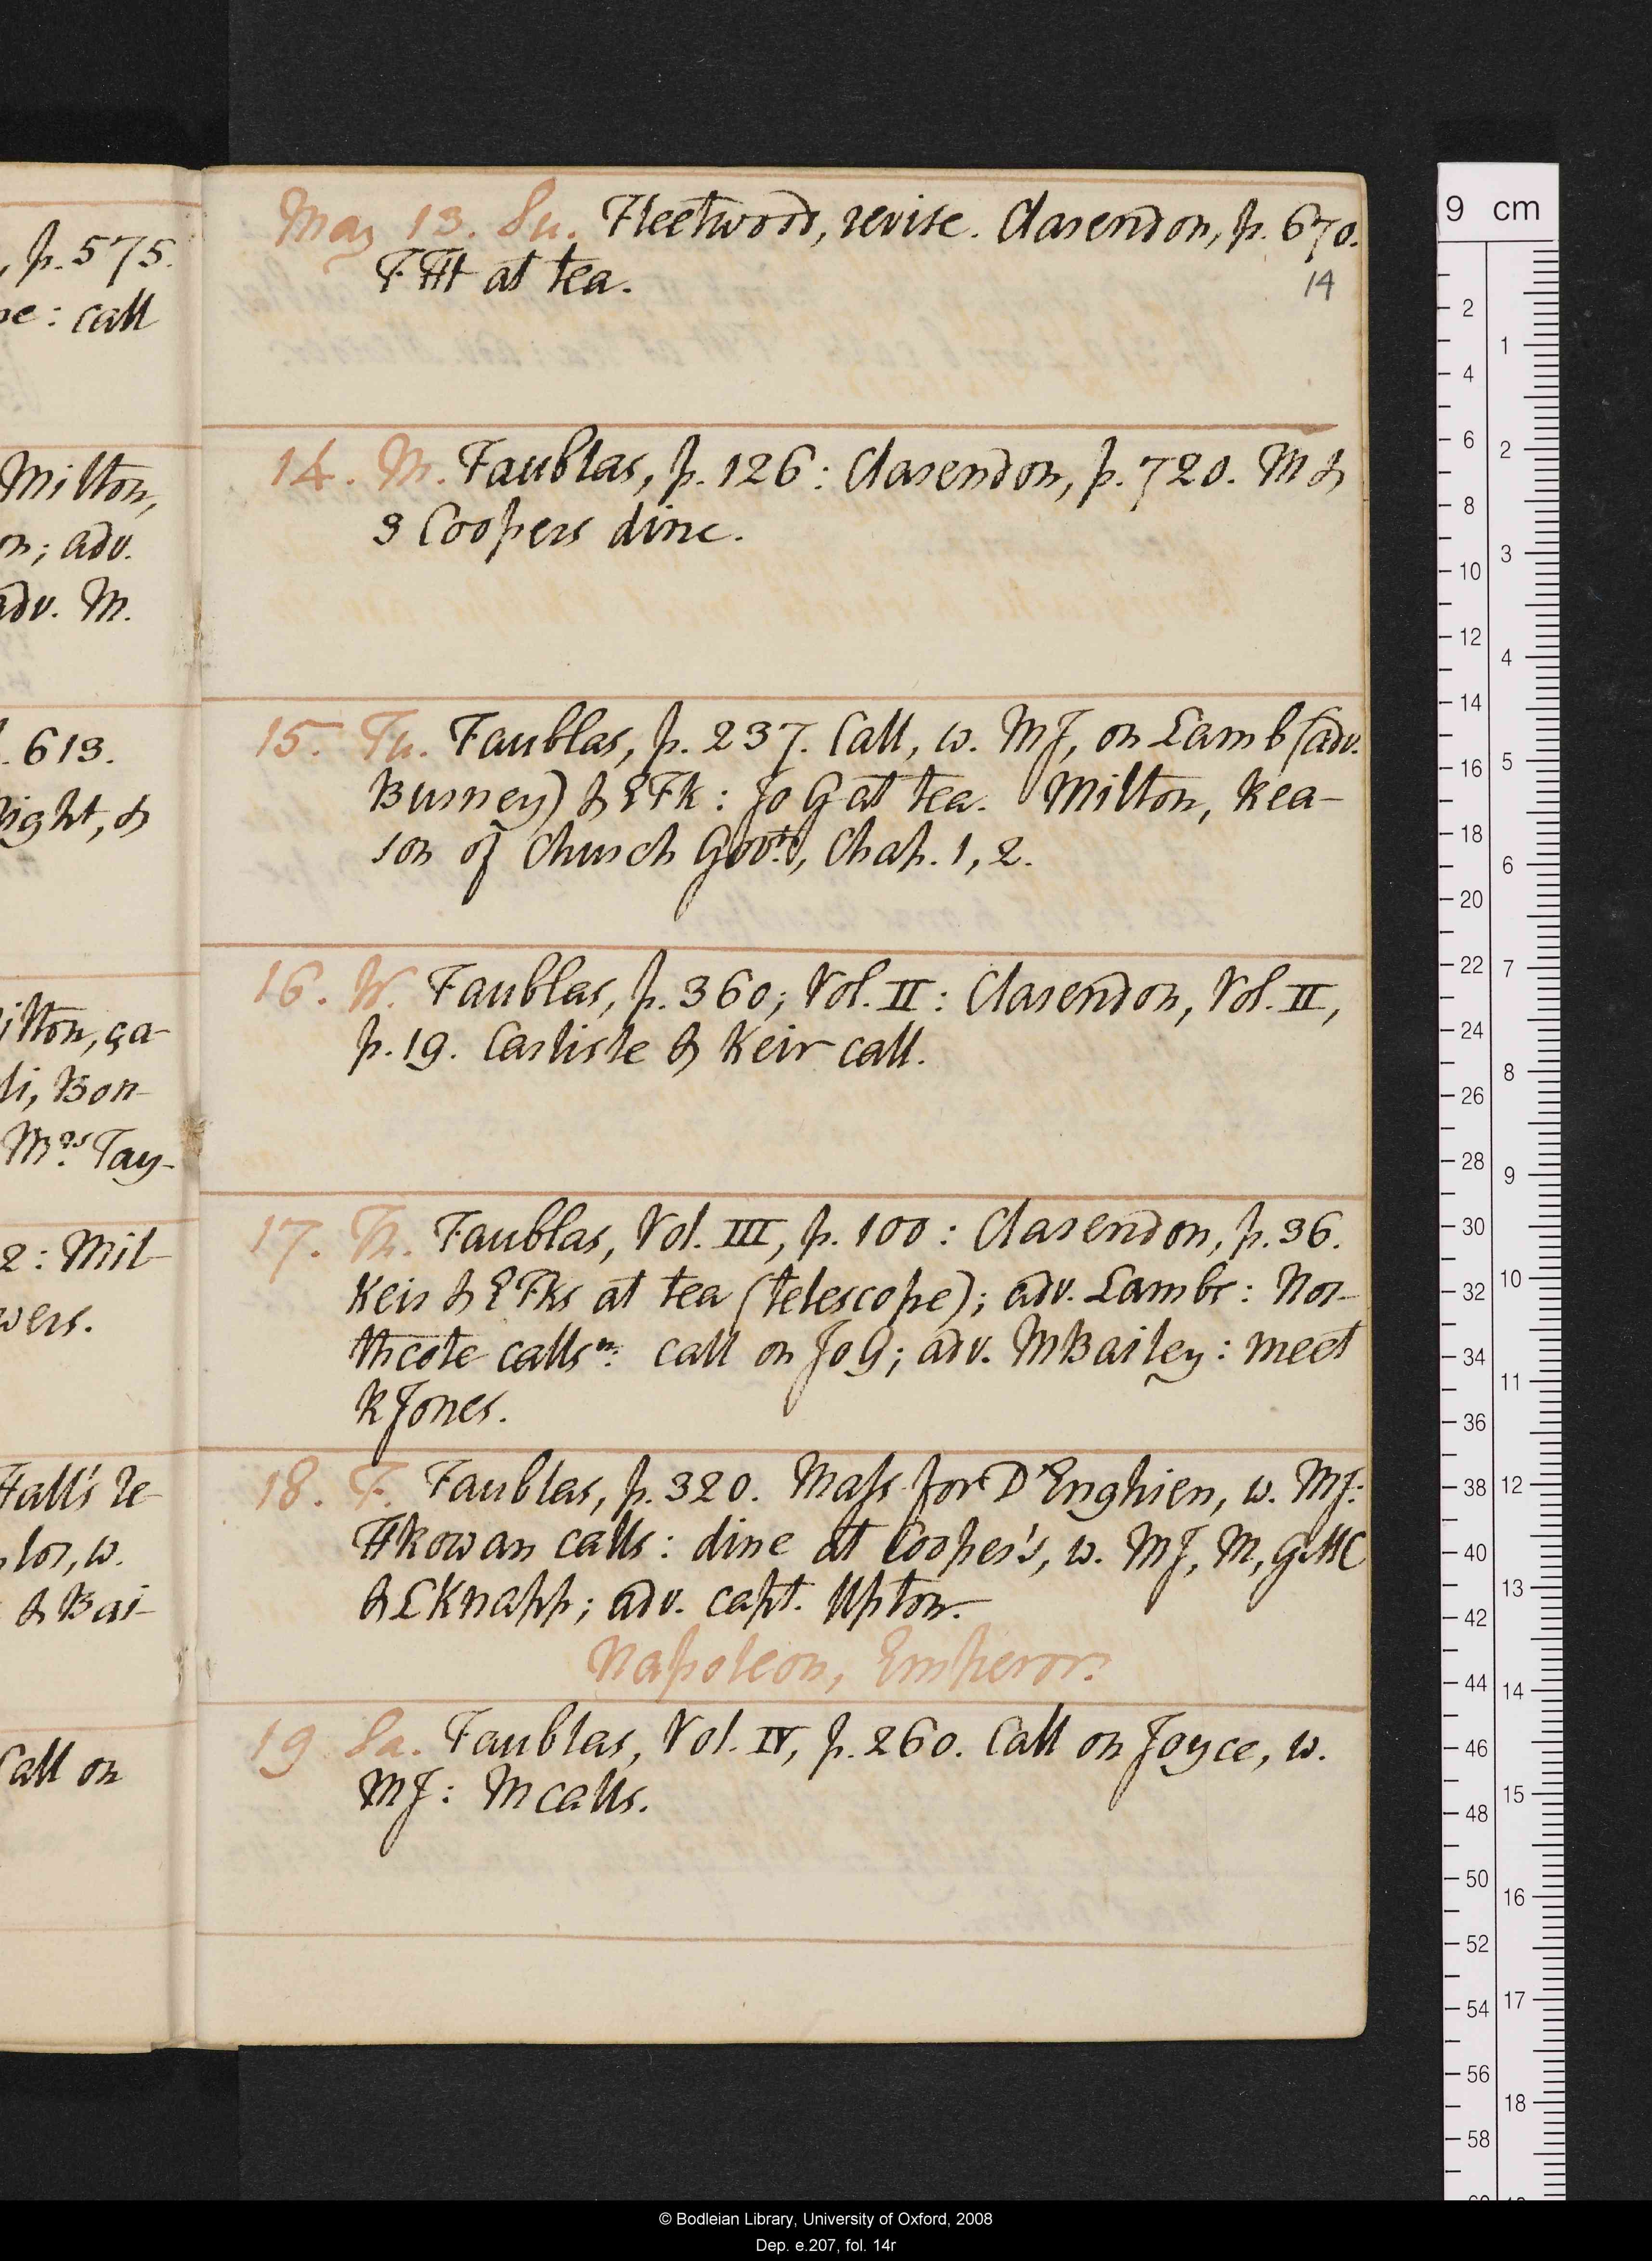 , p. 575.
e: call
Milton,
n; adv.
adv. M.
. 613.
night, &
ilton, ga-
li, Bon-
Mrs. Tay-
2: Mil-
wers.
Hall's re-
lor, w.
& Bai-
Call on
May 13. Su. Fleetwood, revise. Clarendon, p. 670.
FHt at tea.
14
14. M. Faublas, p. 126: Clarendon, p. 720. M &
3 Coopers dine.
15. Tu. Faublas, p. 237. Call, w. MJ, on Lamb (adv.
Burney) & EFk: Jo G at tea. Milton, Rea-
son of Church Govt., Chap. 1, 2.
16. W. Faublas, p. 360; Vol. II: Clarendon, Vol. II,
p. 19. Carlisle & Keir call.
17. Th. Faublas, Vol. III, p. 100: Clarendon, p. 36.
Keir & EFks at tea (telescope); adv. Lambs: Nor-
thcote calls n.: call on Jo G; adv. MBailey: meet
RJones.
18. F. Faublas, p. 320. Mass for D'Enghien, w. MJ:
HRowan calls: dine at Cooper's, w. MJ, M, GMC
& LKnapp; adv. capt. Upton.
Napoleon, Emperor.
19 Sa. Faublas, Vol. IV, p. 260. Call on Joyce, w.
MJ: M calls.
9 cm
2
4
6
8
10
12
14
16
18
20
22
24
26
28
30
32
34
36
38
40
42
44
46
48
50
52
54
56
58
1
2
3
4
5
6
7
8
9
10
11
12
13
14
15
16
17
18
© Bodleian Library, University of Oxford, 2008
Dep. e.207, fol. 14r